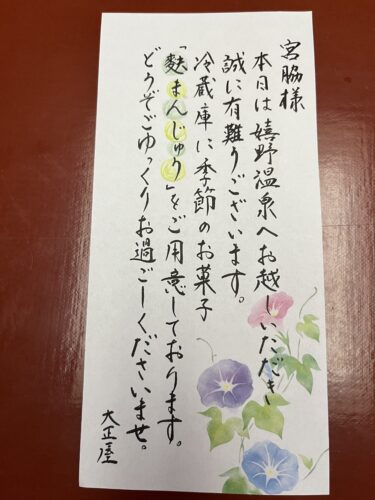 宮脇様
本日は嬉野温泉へお越しいただき
誠に有難うございます。
冷蔵庫に季節のお菓子
「麩まんじゅう」をご用意しております。
どうぞごゆっくりお過ごしくださいませ。
大正屋